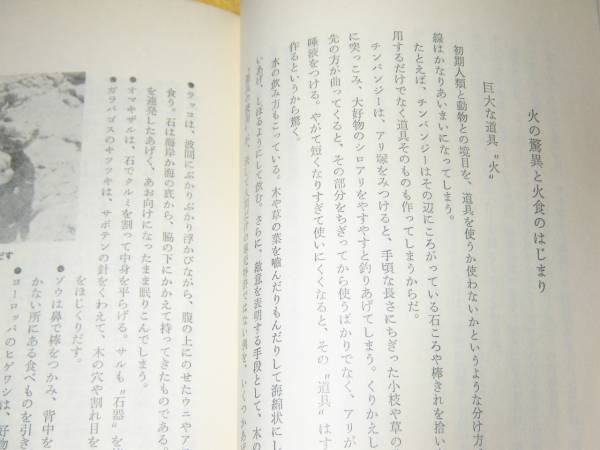 火の驚異と火食のはじまり
巨大な道具〝火〟
初期人類と動物との境目を、道具を使うか使わないかというような分け方
線はかなりあいまいになってしまう。
たとえば、チンパンジーはその辺にころがっている石ころや棒きれを拾い
用するだけでなく道具そのものも作ってしまうからだ。
チンパンジーは、アリ塚をみつけると、手頃な長さにちぎった小枝や草の
に突っこみ、大好物のシロアリをやすやすと釣りあげてしまう。くりかえし
先の方が曲ってくると、その部分をちぎってから使うばかりでなく、アリが
唾液をつける。やがて短くなりすぎて使いにくくなると、その〝道具〟はす
作るというから驚く。
水の飲み方もこっている。木や草の葉を噛んだりもんだりして海綿状にし
いあげ、しぼるようにして飲む。さらに、敵意を表明する手段として、木の
いくつかあげ
ラッコは、波間にぷかりぷかり浮かびながら、腹の上にのせたウニやア
食う。石は海岸か海の底から、脇の下にかかえて持ってきたものである。
オマキザルは、石でクルミを割って中身を平らげる。サルも〝石器〟を
を連発したあげく、あお向けになったまま眠りこんでしまう。
ガラパゴスのキツツキは、サボテンの針をくわえて、木の穴や割れ目を
をほじくりだす。
ゾウは鼻で棒をつかみ、背中を
かない所にある食べものを引き
ヨーロッパのヒゲワシは、好物
だす